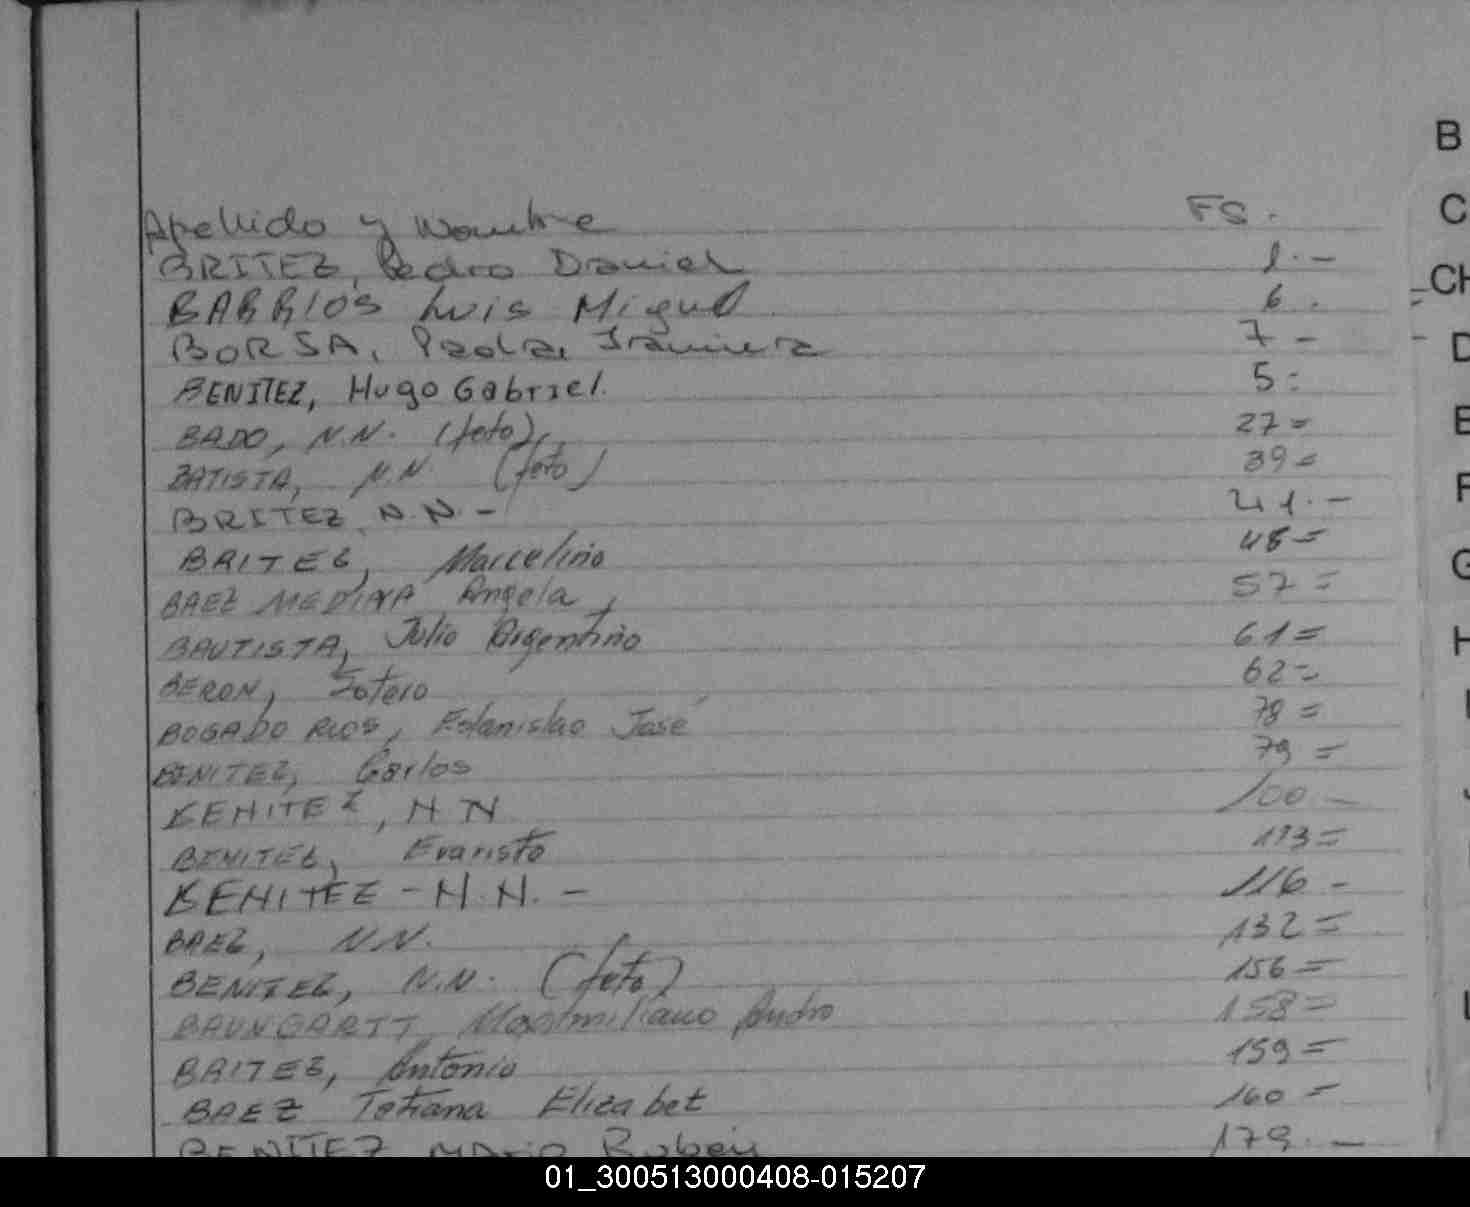 Apellido y Nombre FS.
BRITEZ, Pedro Daniel 1.-
BARRIOS Luis Miguel 6.
BORSA, Paola, 7-
BENITEZ, Hugo Gabriel. 5=
BADO, N.N. (feto), 27=
BATISTA, N.N. (feto) 39=
BRITEZ, N.N.- 41.-
BRITEZ, Marcelino 48=
BAEZ MEDINA Angela, 57=
BAUTISTA, Julio Argentino 61=
BERON, Zotero 62=
BOGADO RIOS, Estanislao José 78=
BENITEZ, Carlos 79=
BENITEZ, N N 100-
BENITEZ, Evaristo 113=
BENITEZ-N.N.- 116-
BAEZ, N.N. 132=
BENITEZ, N.N. (feto) 156=
BAUNGARTT, Maximiliano 158=
BRITEZ, Antonio 159=
BAEZ Tatiana Elizabet 160=
BENITEZ Mario Ruben 179.-
B
C
CH
D
E
F
G
H
I
J
L
01_300513000408-015207